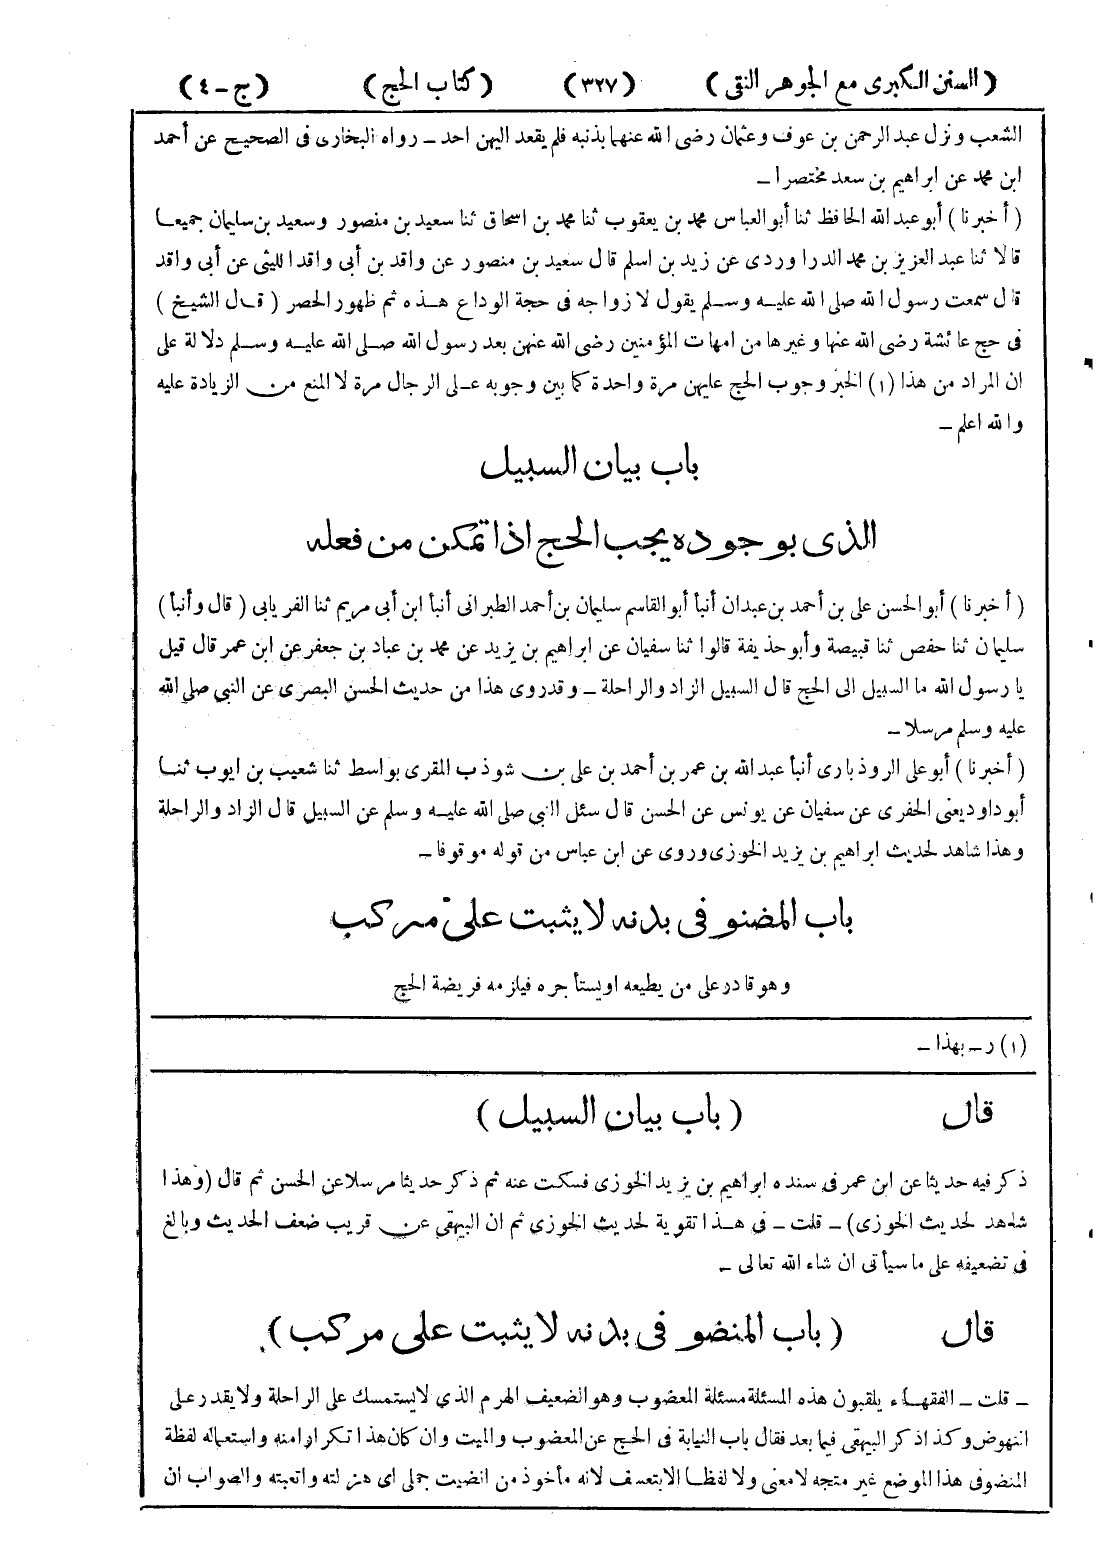 ( السنن الكبرى مع الجوهر النقى ) ( ٣٢٧ ) ( كتاب الحج ) ( ج - ٤ )
الشعب ونزل عبد الرحمن بن عوف وعثمان رضى الله عنهما بذنبه فلم يقعد اليهن احد - رواه البخارى فى الصحيح عن أحمد
ابن محمد عن ابراهيم بن سعد مختصرا -
( أخبرنا ) أبو عبد الله الحافظ ثنا أبو العباس محمد بن يعقوب ثنا محمد بن اسحاق ثنا سعيد بن منصور وسعيد بن سليمان جميعا
قالا ثنا عبد العزيز بن محمد الدراوردى عن زيد بن اسلم قال سعيد بن منصور عن واقد بن أبى واقد الليثى عن أبى واقد
قال سمعت رسول الله صلى الله عليه وسلم يقول لازواجه فى حجة الوداع هذه ثم ظهور الحصر ( قال الشيخ )
فى حج عائشة رضى الله عنها وغيرها من امهات المؤمنين رضى الله عنهن بعد رسول الله صلى الله عليه وسلم دلالة على
ان المراد من هذا (١) الخبر وجوب الحج عليهن مرة واحدة كما بين وجوبه على الرجال مرة لا المنع من الزيادة عليه
والله اعلم -
باب بيان السبيل
الذى بوجوده يجب الحج اذا تمكن من فعله
( أخبرنا ) أبو الحسن على بن أحمد بن عبدان أنبأ أبو القاسم سليمان بن أحمد الطبرانى أنبأ ابن أبى مريم ثنا الفريابى ( قال وأنبأ )
سليمان ثنا حفص ثنا قبيصة وأبو حذيفة قالوا ثنا سفيان عن ابراهيم بن يزيد عن محمد بن عباد بن جعفر عن ابن عمر قال قيل
يا رسول الله ما السبيل الى الحج قال السبيل الزاد والراحلة - وقدروى هذا من حديث الحسن البصرى عن النبي صلى الله
عليه وسلم مرسلا -
( أخبرنا ) أبو على الروذبارى أنبأ عبد الله بن عمر بن أحمد بن على بن شوذب المقرى بواسط ثنا شعيب بن ايوب ثنا
أبو داود يعنى الحفرى عن سفيان عن يونس عن الحسن قال سئل النبي صلى الله عليه وسلم عن السبيل قال الزاد والراحلة
وهذا شاهد لحديث ابراهيم بن يزيد الخوزى وروى عن ابن عباس من قوله موقوفا -
باب المضنو فى بدنه لا يثبت على مركب
وهو قادر على من يطيعه او يستأجره فيلزمه فريضة الحج
(١) ر - بهذا -
قال ( باب بيان السبيل )
ذكر فيه حديثا عن ابن عمر فى سنده ابراهيم بن يزيد الخوزى فسكت عنه ثم ذكر حديثا مرسلا عن الحسن ثم قال (وهذا
شاهد لحديث الخوزى) - قلت - فى هذا تقوية لحديث الخوزى ثم ان البيهقى عن قريب ضعف الحديث وبالغ
فى تضعيفه على ما سيأتى ان شاء الله تعالى -
قال ( باب المنضو فى بدنه لا يثبت على مركب )
- قلت - الفقهاء يلقبون هذه المسئلة مسئلة المعضوب وهو الضعيف الهرم الذي لا يستمسك على الراحلة ولا يقدر على
النهوض وكذا ذكر البيهقى فيما بعد فقال باب النيابة فى الحج عن المعضوب والميت وان كان هذا تكرارا منه واستعماله لفظة
المنضو فى هذا الموضع غير متجه لا معنى ولا لفظا الابتعسف لانه مأخوذ من انضيت جملى اى هزلته واتعبته والصواب ان